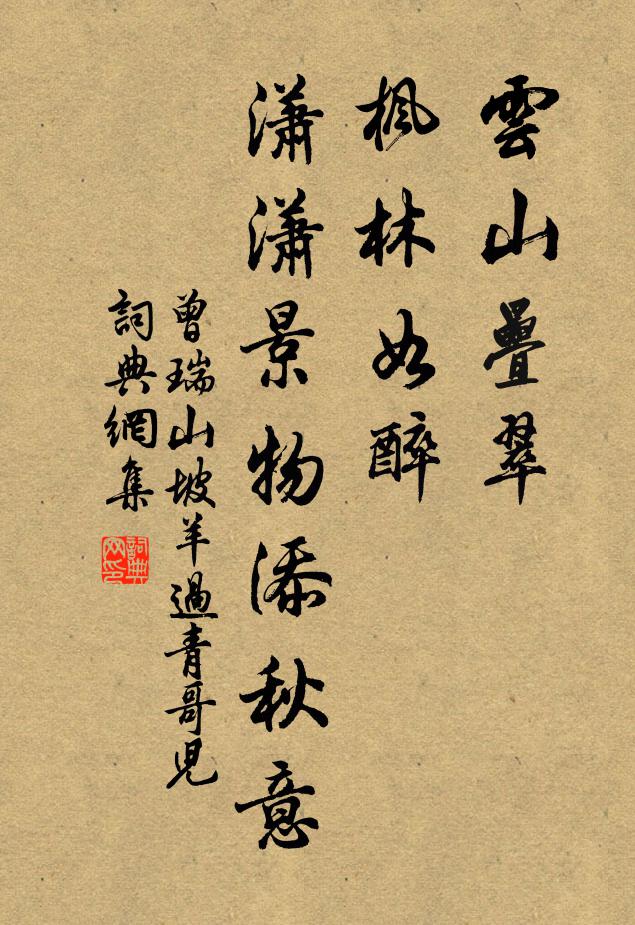 雲山疊翠
楓林如醉
瀟瀟景物添秋意
曾瑞山坡羊過青哥兒
詞典網集
詞典
网印